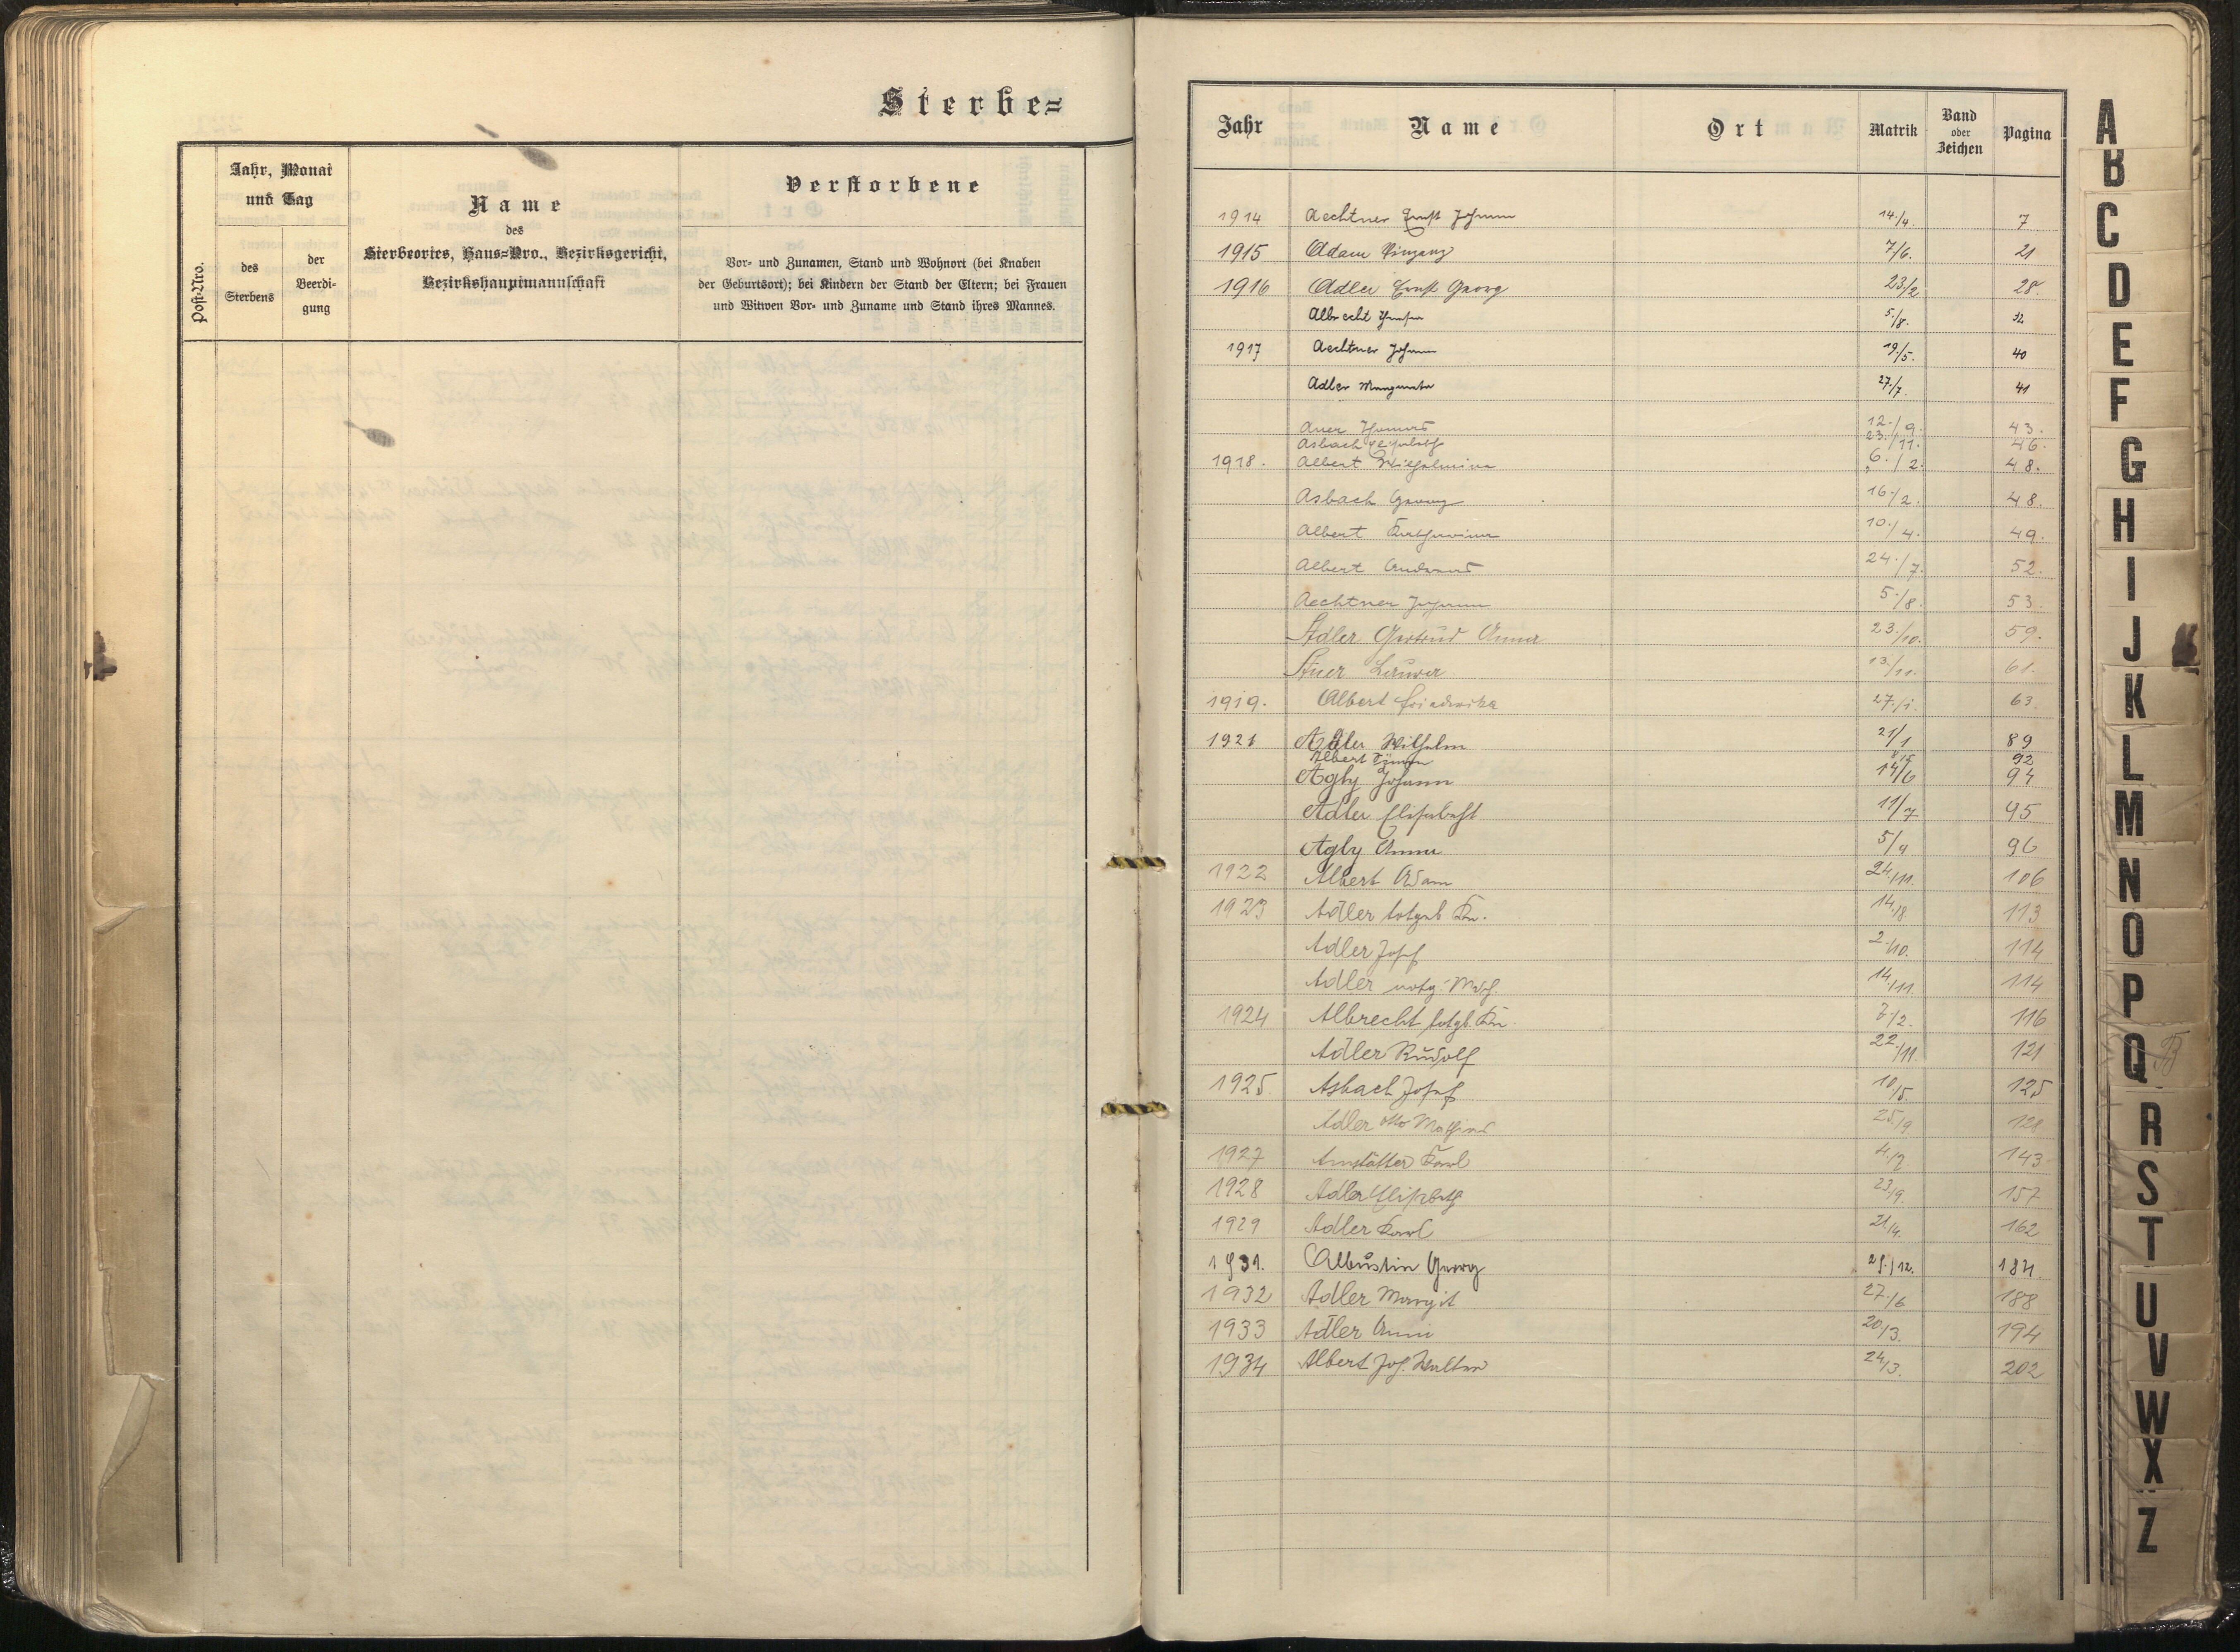 Sterbe=
Post-Nro.
Jahr, Monat
und Tag
des
Sterbens
der
Beerdi-
gung
Name
des
Sterbeortes, Haus=Nro., Bezirksgericht,
Bezirkshauptmannschaft
Verstorbene
Vor- und Zunamen, Stand und Wohnort (bei Knaben
der Geburtsort); bei Kindern der Stand der Eltern; bei Frauen
und Witwen Vor- und Zuname und Stand ihres Mannes.
Jahr Name Ort Matrik Band oder Zeichen Pagina
1914 Aechtner Ernst Johann 14./4. 7
1915 Adam 7/6. 21
1916 Adler Ernst Georg 23/2 28.
Albrecht 5./8. 32
1917 Aechtner Johann 19./5. 40
Adler Margareta 27./7. 41
Auer Thomas 12./9. 43.
Asbach Elisabeth 23./11. 46.
1918. Albert Wilhelmine 6./2. 48.
Asbach Georg 16./2. 48.
Albert Katharina 10./4. 49.
Albert Andreas 24./7. 52.
Aechtner Johann 5./8. 53.
Adler Gertrud Anna 23./10. 59.
Auer 13./11. 61.
1919. Albert Friederika 27./1. 63.
1921 Adler Wilhelm 21/1 89
Albert 92
Agly Johann 14/6 94
Adler Elisabeth 11/7 95
Agly Anna 5/9 96
1922 Albert Adam 24./11. 106
1923 Adler totgeb. Kn. 14./8 113
Adler Josef 2./10. 114
Adler notg. Mdch. 14./11. 114
1924 Albrecht totgb. Kn. 7/2. 116
Adler Rudolf 22./11. 121
1925 Asbach Josef 10./5. 125
Adler Otto Mathias 25./9. 128
1927 Amstätter Karl 4./2. 143
1928 Adler Elisabeth 23./9. 157
1929 Adler Karl 21./4. 162
1931. Albustin Georg 25./12. 184.
1932 Adler Margit 27./6 188
1933 Adler Anni 20./3. 194
1934 Albert Jos. Walter 24./3. 202
A
B
C
D
E
F
G
H
I
J
K
L
M
N
O
P
Q
R
S
T
U
V
W
X
Z